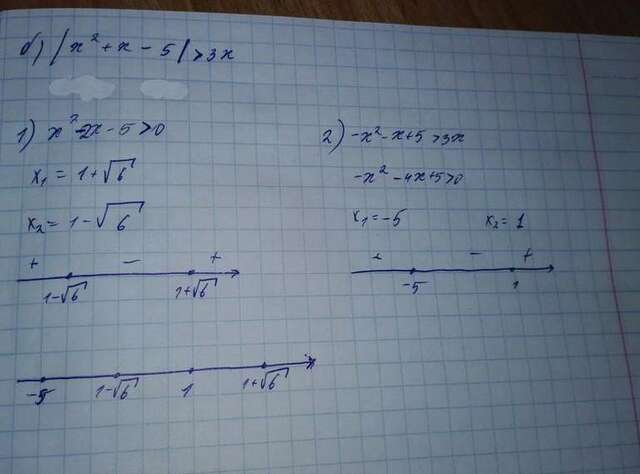 б) |x² + x - 5| > 3x
1) x² - 2x - 5 > 0
x₁ = 1 + √6
x₂ = 1 - √6
+ - +
1-√6 1+√6
2) -x² - x + 5 > 3x
-x² - 4x + 5 > 0
x₁ = -5 x₂ = 1
+ - +
-5 1
-5 1-√6 1 1+√6